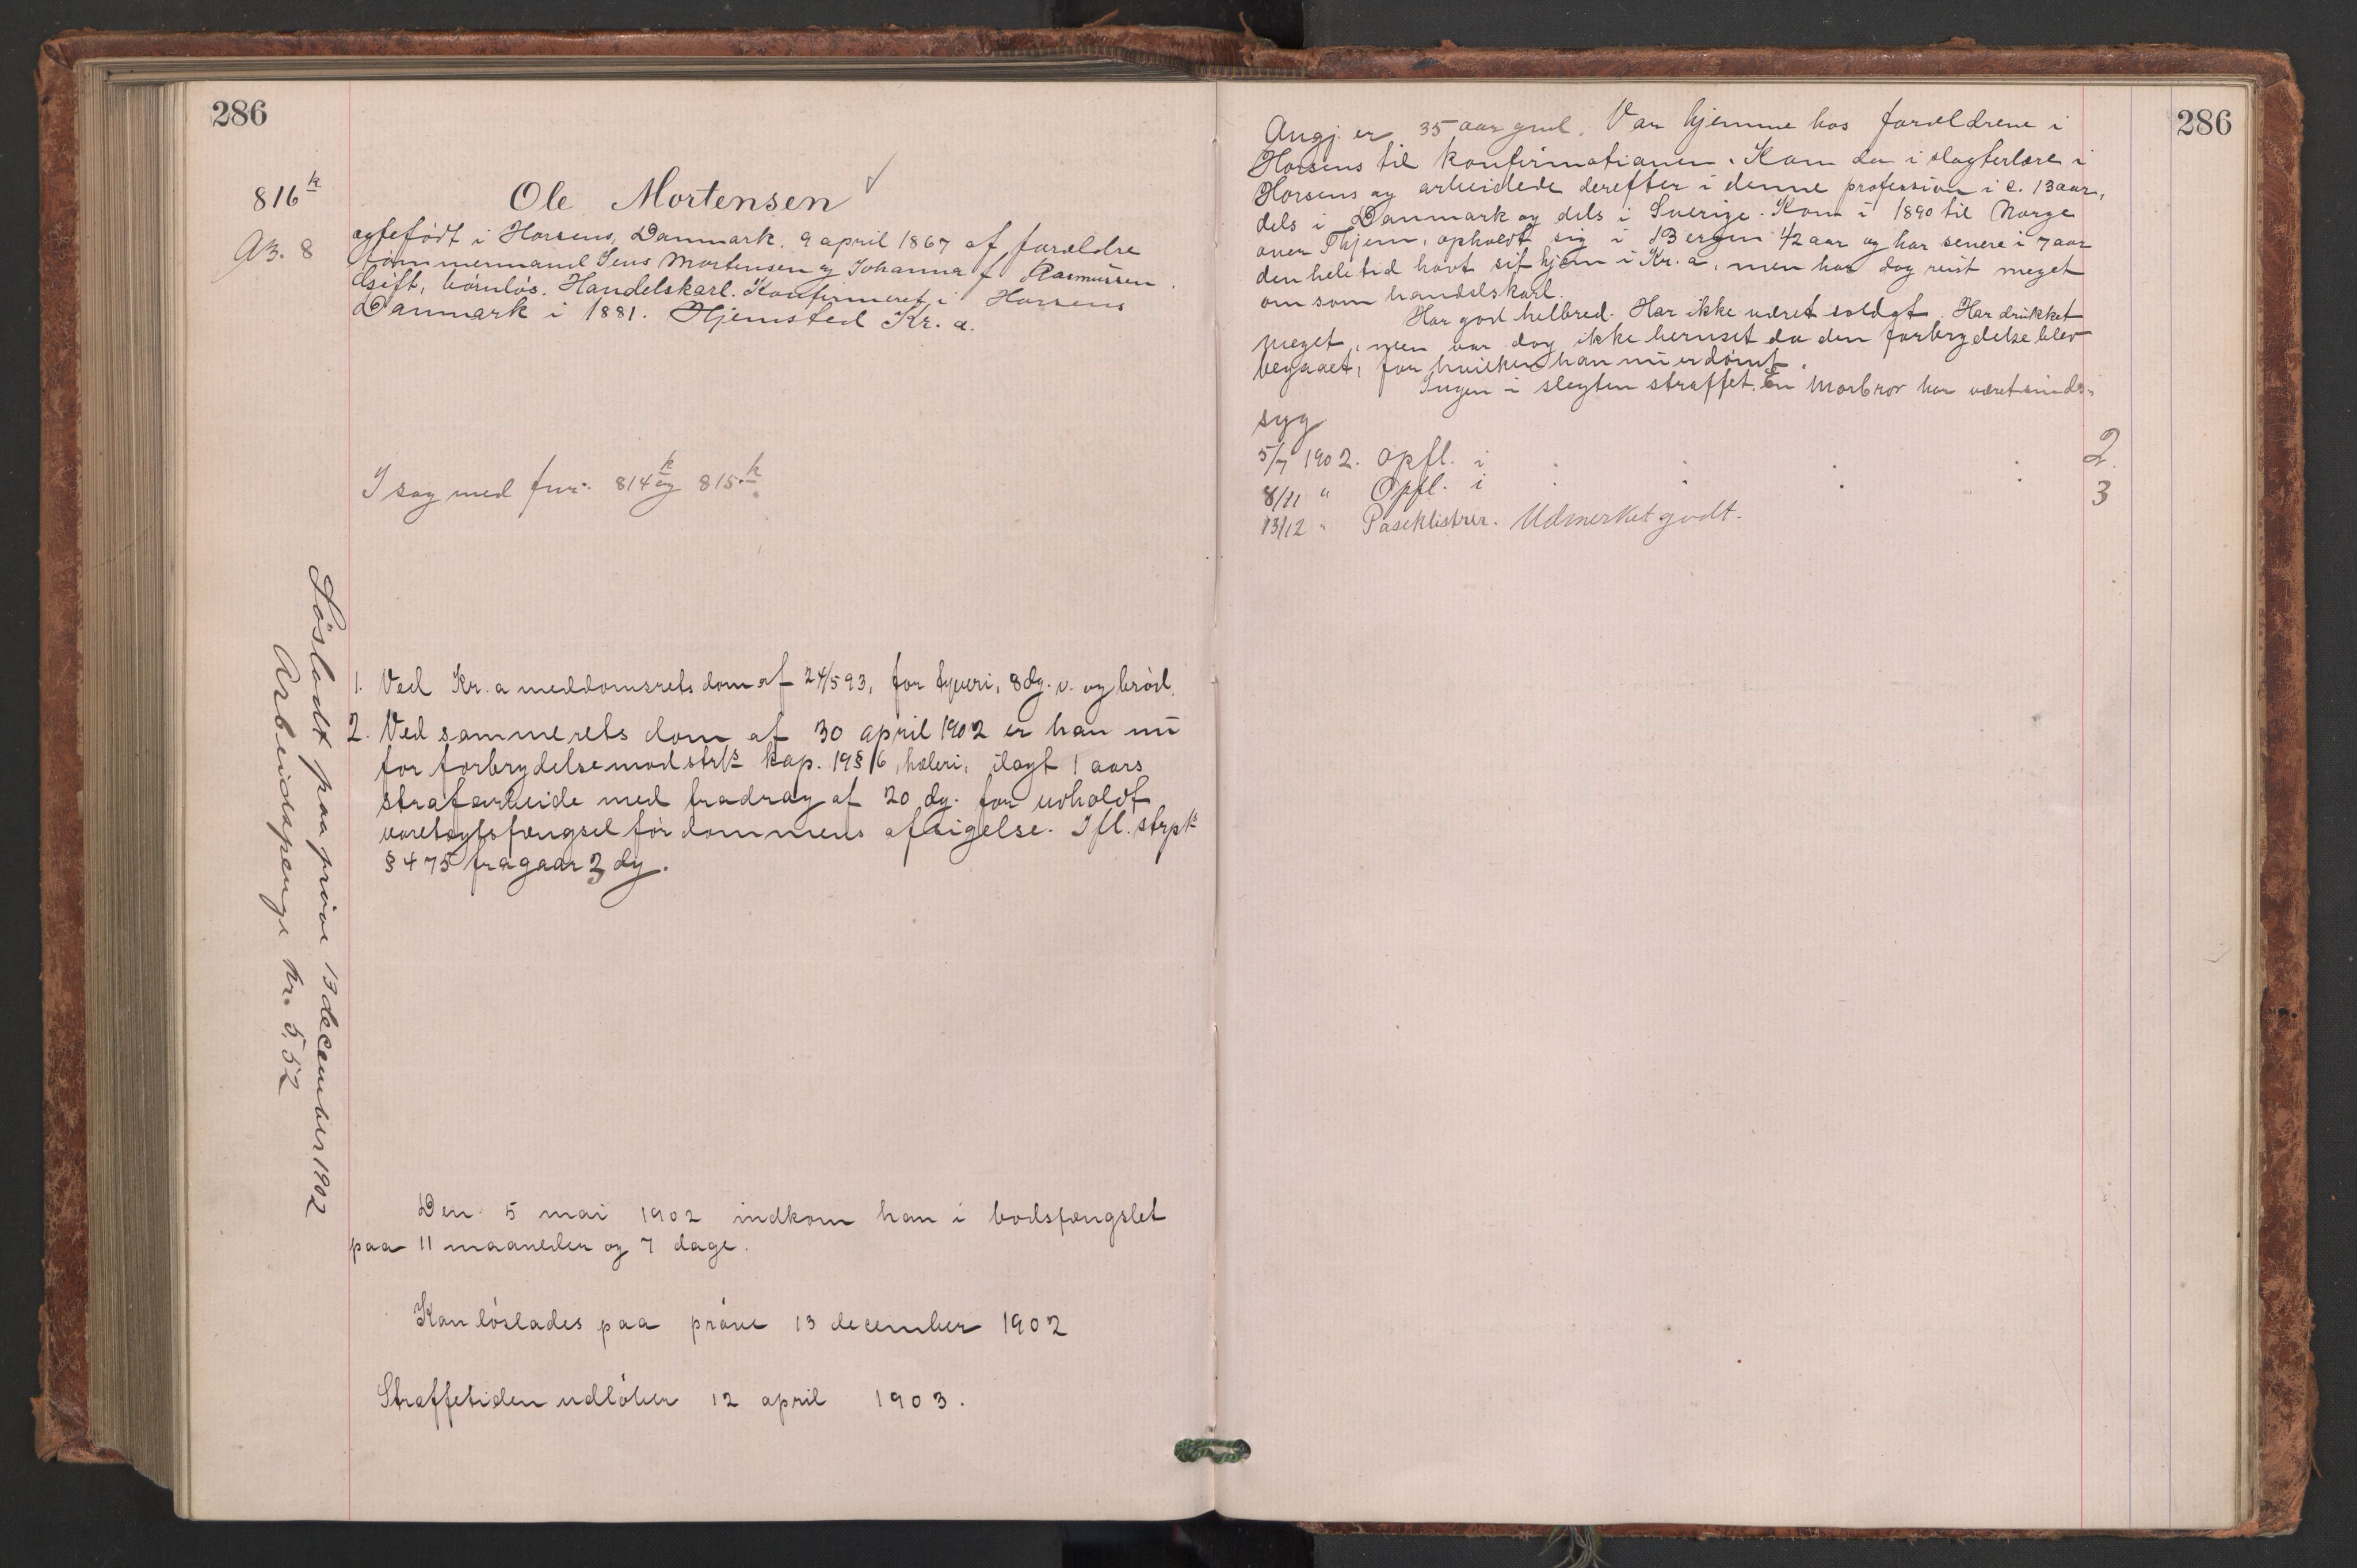 286
816 k
AB. 8
Ole Mortensen ✓
egtefödt i Horsens, Danmark, 9 april 1867 af forældre
tömmermand Jens Mortensen og Johanna f. Rasmussen.
Gift, börnlös. Handelskarl. Konfirmeret i Horsens
Danmark i 1881. Hjemsted Kr.a.
I sag med fnr. 814 k og 815 k.
1. Ved Kr.a meddomsrets dom af 24/5 93, for tyveri, 8 dg. v. og bröd.
2. Ved samme rets dom af 30 april 1902 er han nu
for forbrydelse mod strl. kap. 19 § 16, hæleri, ilagt 1 aars
strafarbeide med fradrag af 20 dg. for udholdt
varetægtsfængsel för dommens afsigelse. Ifl. strpl.
§ 475 fragaar 3 dg.
Den 5 mai 1902 indkom han i bodsfængslet
paa 11 maaneder og 7 dage.
Kan löslades paa pröve 13 december 1902
Straffetiden udlöber 12 april 1903.
Lösladt paa pröve 13 december 1902
Arbeidspenge kr. 5,52
286
Angj. er 35 aar gml. Var hjemme hos forældrene i
Horsens til konfirmationen. Kom da i slagterlære i
Horsens og arbeidede derefter i denne profession i c. 13 aar,
dels i Danmark og dels i Sverige. Kom i 1890 til Norge
over Thjem, opholdt sig i Bergen 1/2 aar og har senere i 7 aar
den hele tid havt sit hjem i Kr.a, men har dog reist meget
om som handelskarl.
Har god helbred. Har ikke været soldat. Har drukket
meget, men var dog ikke beruset da den forbrydelse blev
begaaet, for hvilken han nu er dömt.
Ingen i slegten straffet. En morbror har været sinds-
syg
5/7 1902. Opfl. i . . . . 2.
8/11 " Opfl. i . . . . 3
13/12 " Udmerket godt.